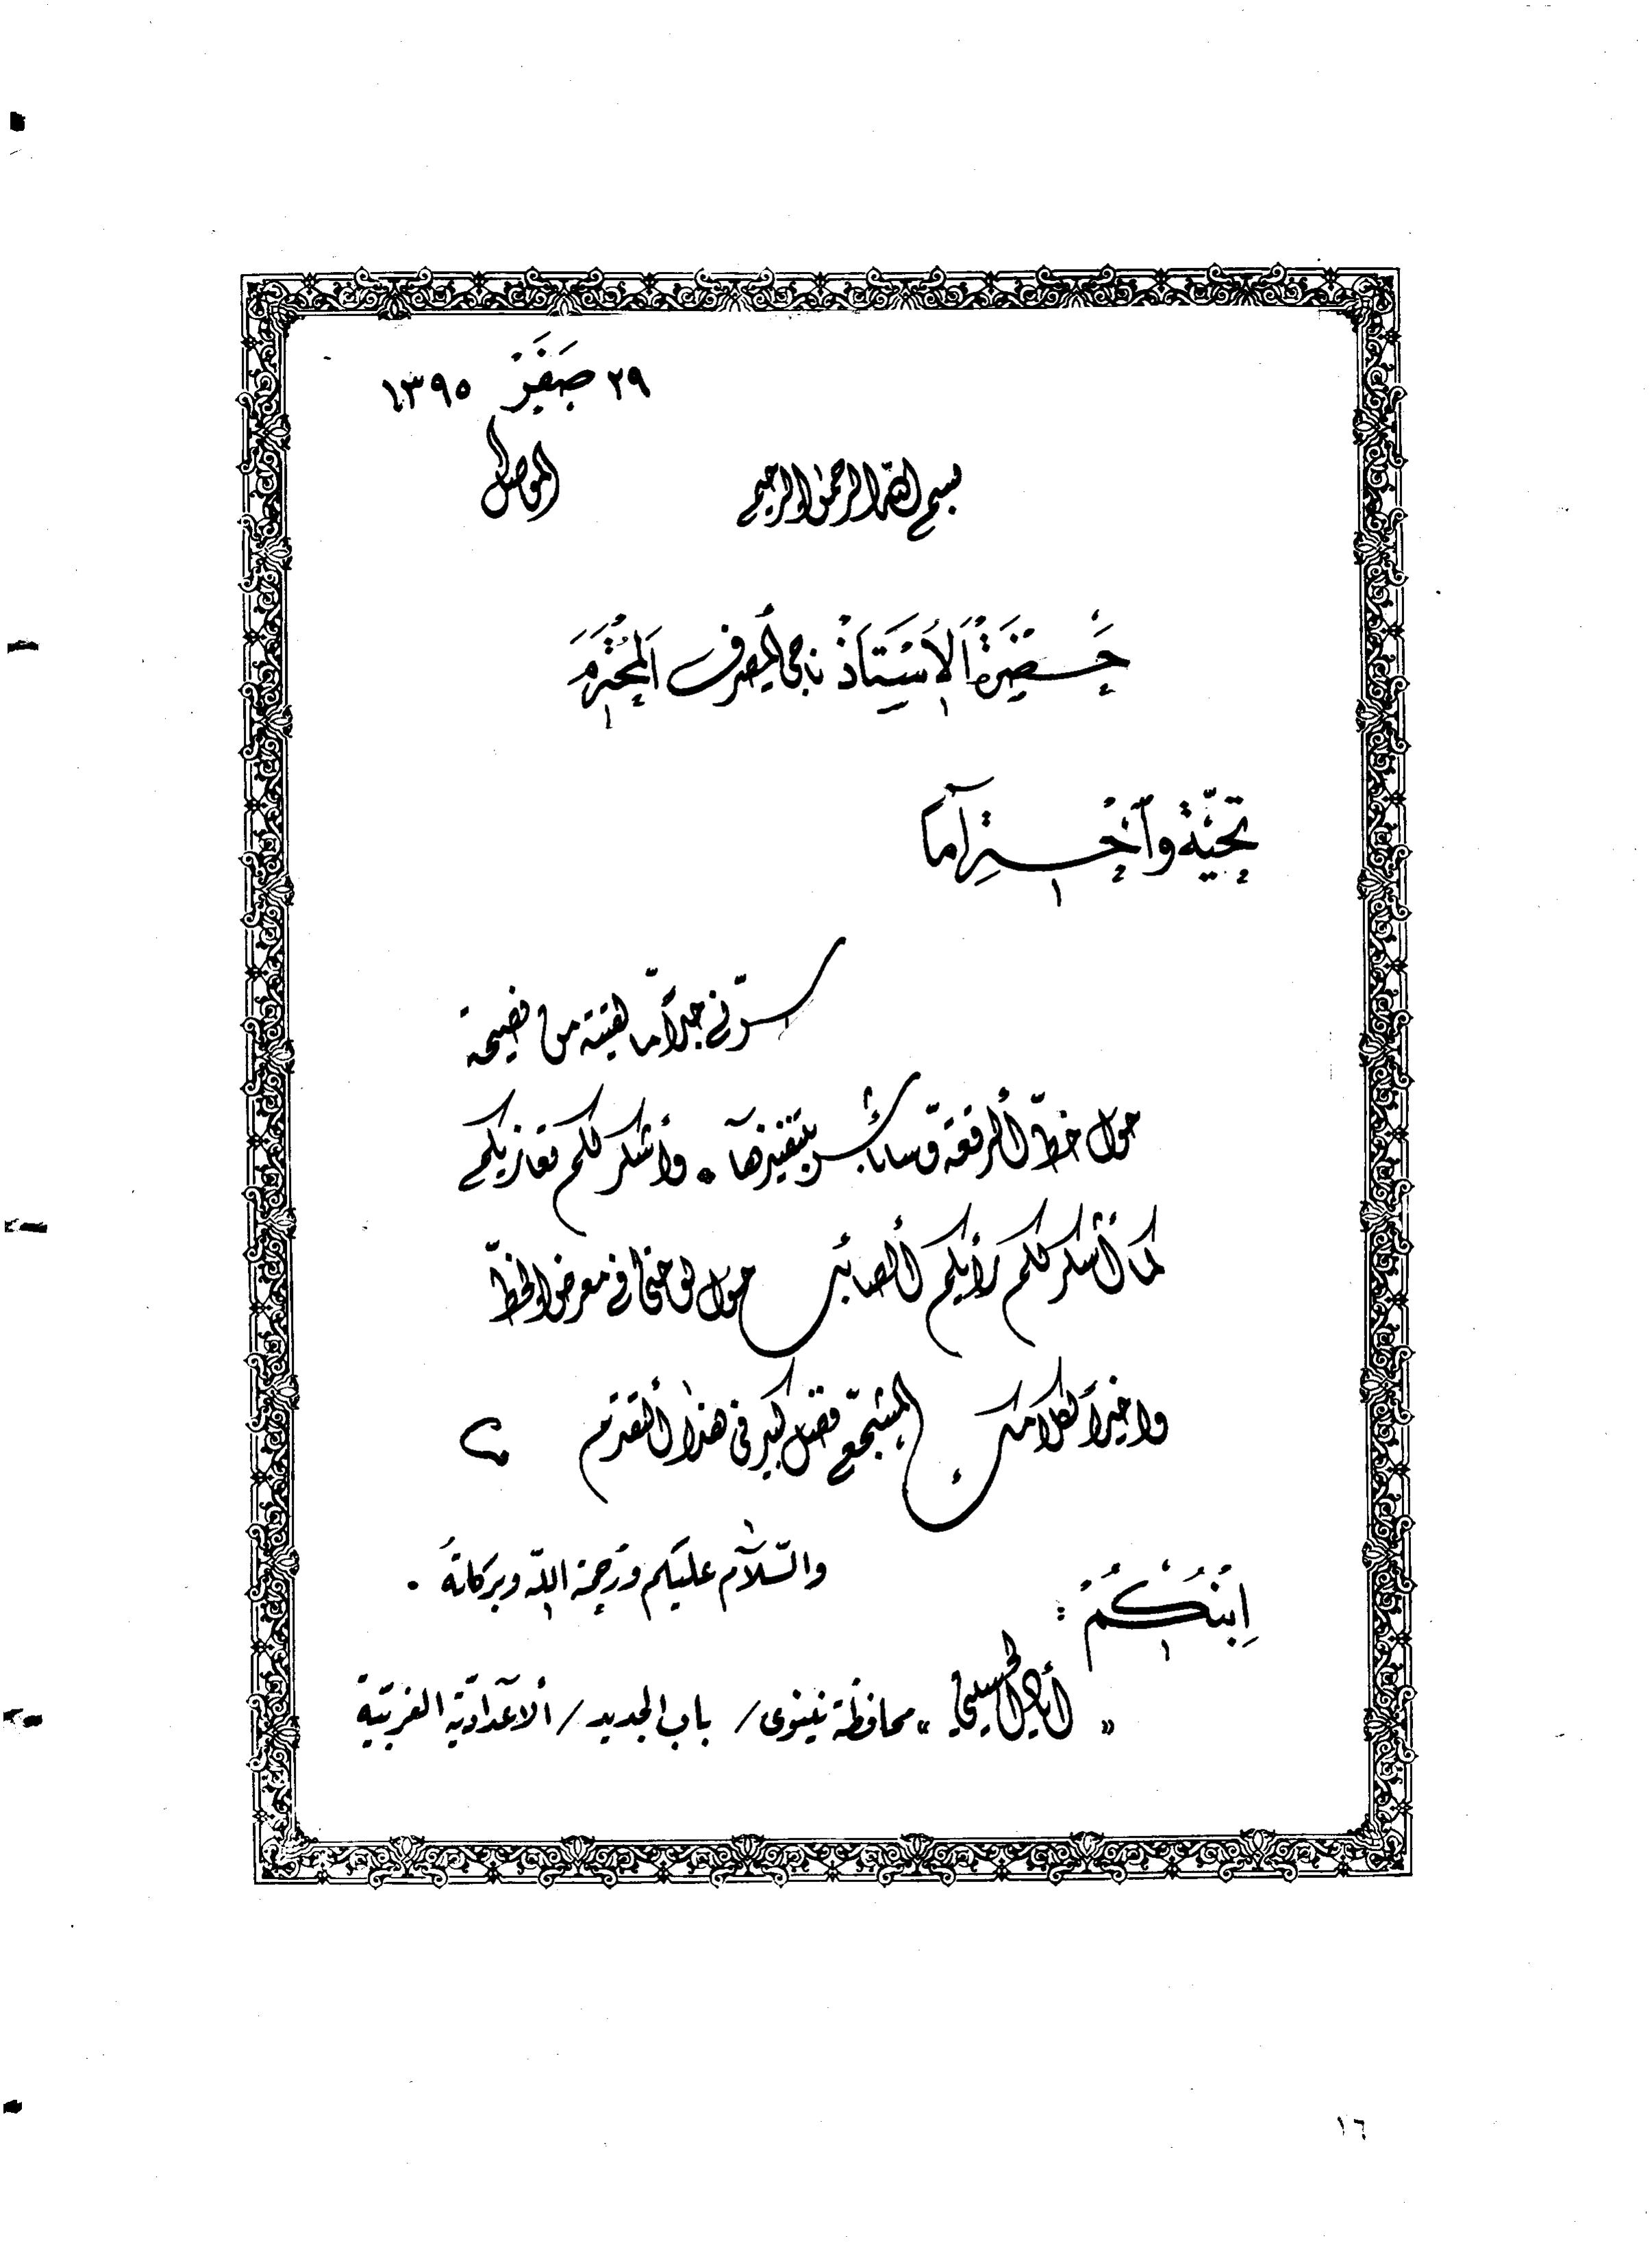 ٢٩ صَفَر ١٣٩٥
الموصل
بسم الله الرحمن الرحيم
حَضرَةُ الأُسْتَاذْ ناجي المصرف المُحْتَرَم
تحيّة وٱحْتِراماً
سرّني جداً ما لقيته من نصيحة
حول خطّ الرقعة وسأباشر بتنفيذها . وأشكر لكم تعازيكم
كما أشكر لكم رأيكم الصائب حول لوحتي في معرض الخطّ
واخيراً لكلامك المشجّع فضل كبير في هذا التقدم
والسّلام عليكم ورَحمة الله وبركاتهُ .
اِبْنُكُمْ :
« أياد الحسيني » محافظة نينوى / باب الجديد / ألاعداديّة الغربيّة
١٦